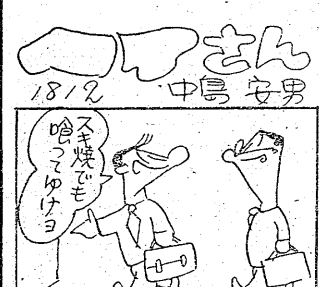 ヘアさん
1812 中島 安男
スキ焼でも
喰ってゆけヨ